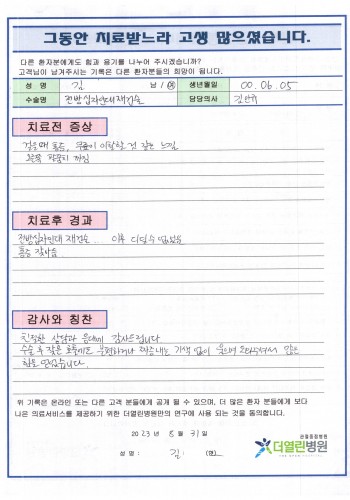 그동안 치료받느라 고생 많으셨습니다.
다른 환자분에게도 힘과 용기를 나누어 주시겠습니까?
고객님이 남겨주시는 기록은 다른 환자분들의 희망이 됩니다.
성 명 김 남 / 여 생년월일 00.06.05
수술명 전방십자인대재건술 담당의사
치료전 증상
걸을때 통증, 무릎이 이탈할 것 같은 느낌
치료후 경과
전방십자인대 재건술... 이후
통증 잦아듬
감사와 칭찬
친절한 상담과 응대에 감사드립니다
수술 후 잦은 호출에도 없이 웃으며 많은
힘을 얻었습니다.
위 기록은 온라인 또는 다른 고객 분들에게 공개 될 수 있으며, 더 많은 환자 분들에게 보다
나은 의료서비스를 제공하기 위한 더열린병원만의 연구에 사용 되는 것을 동의합니다.
2023 년 8 월 31 일
성 명 : 김 (인)
관절중점병원
더열린병원